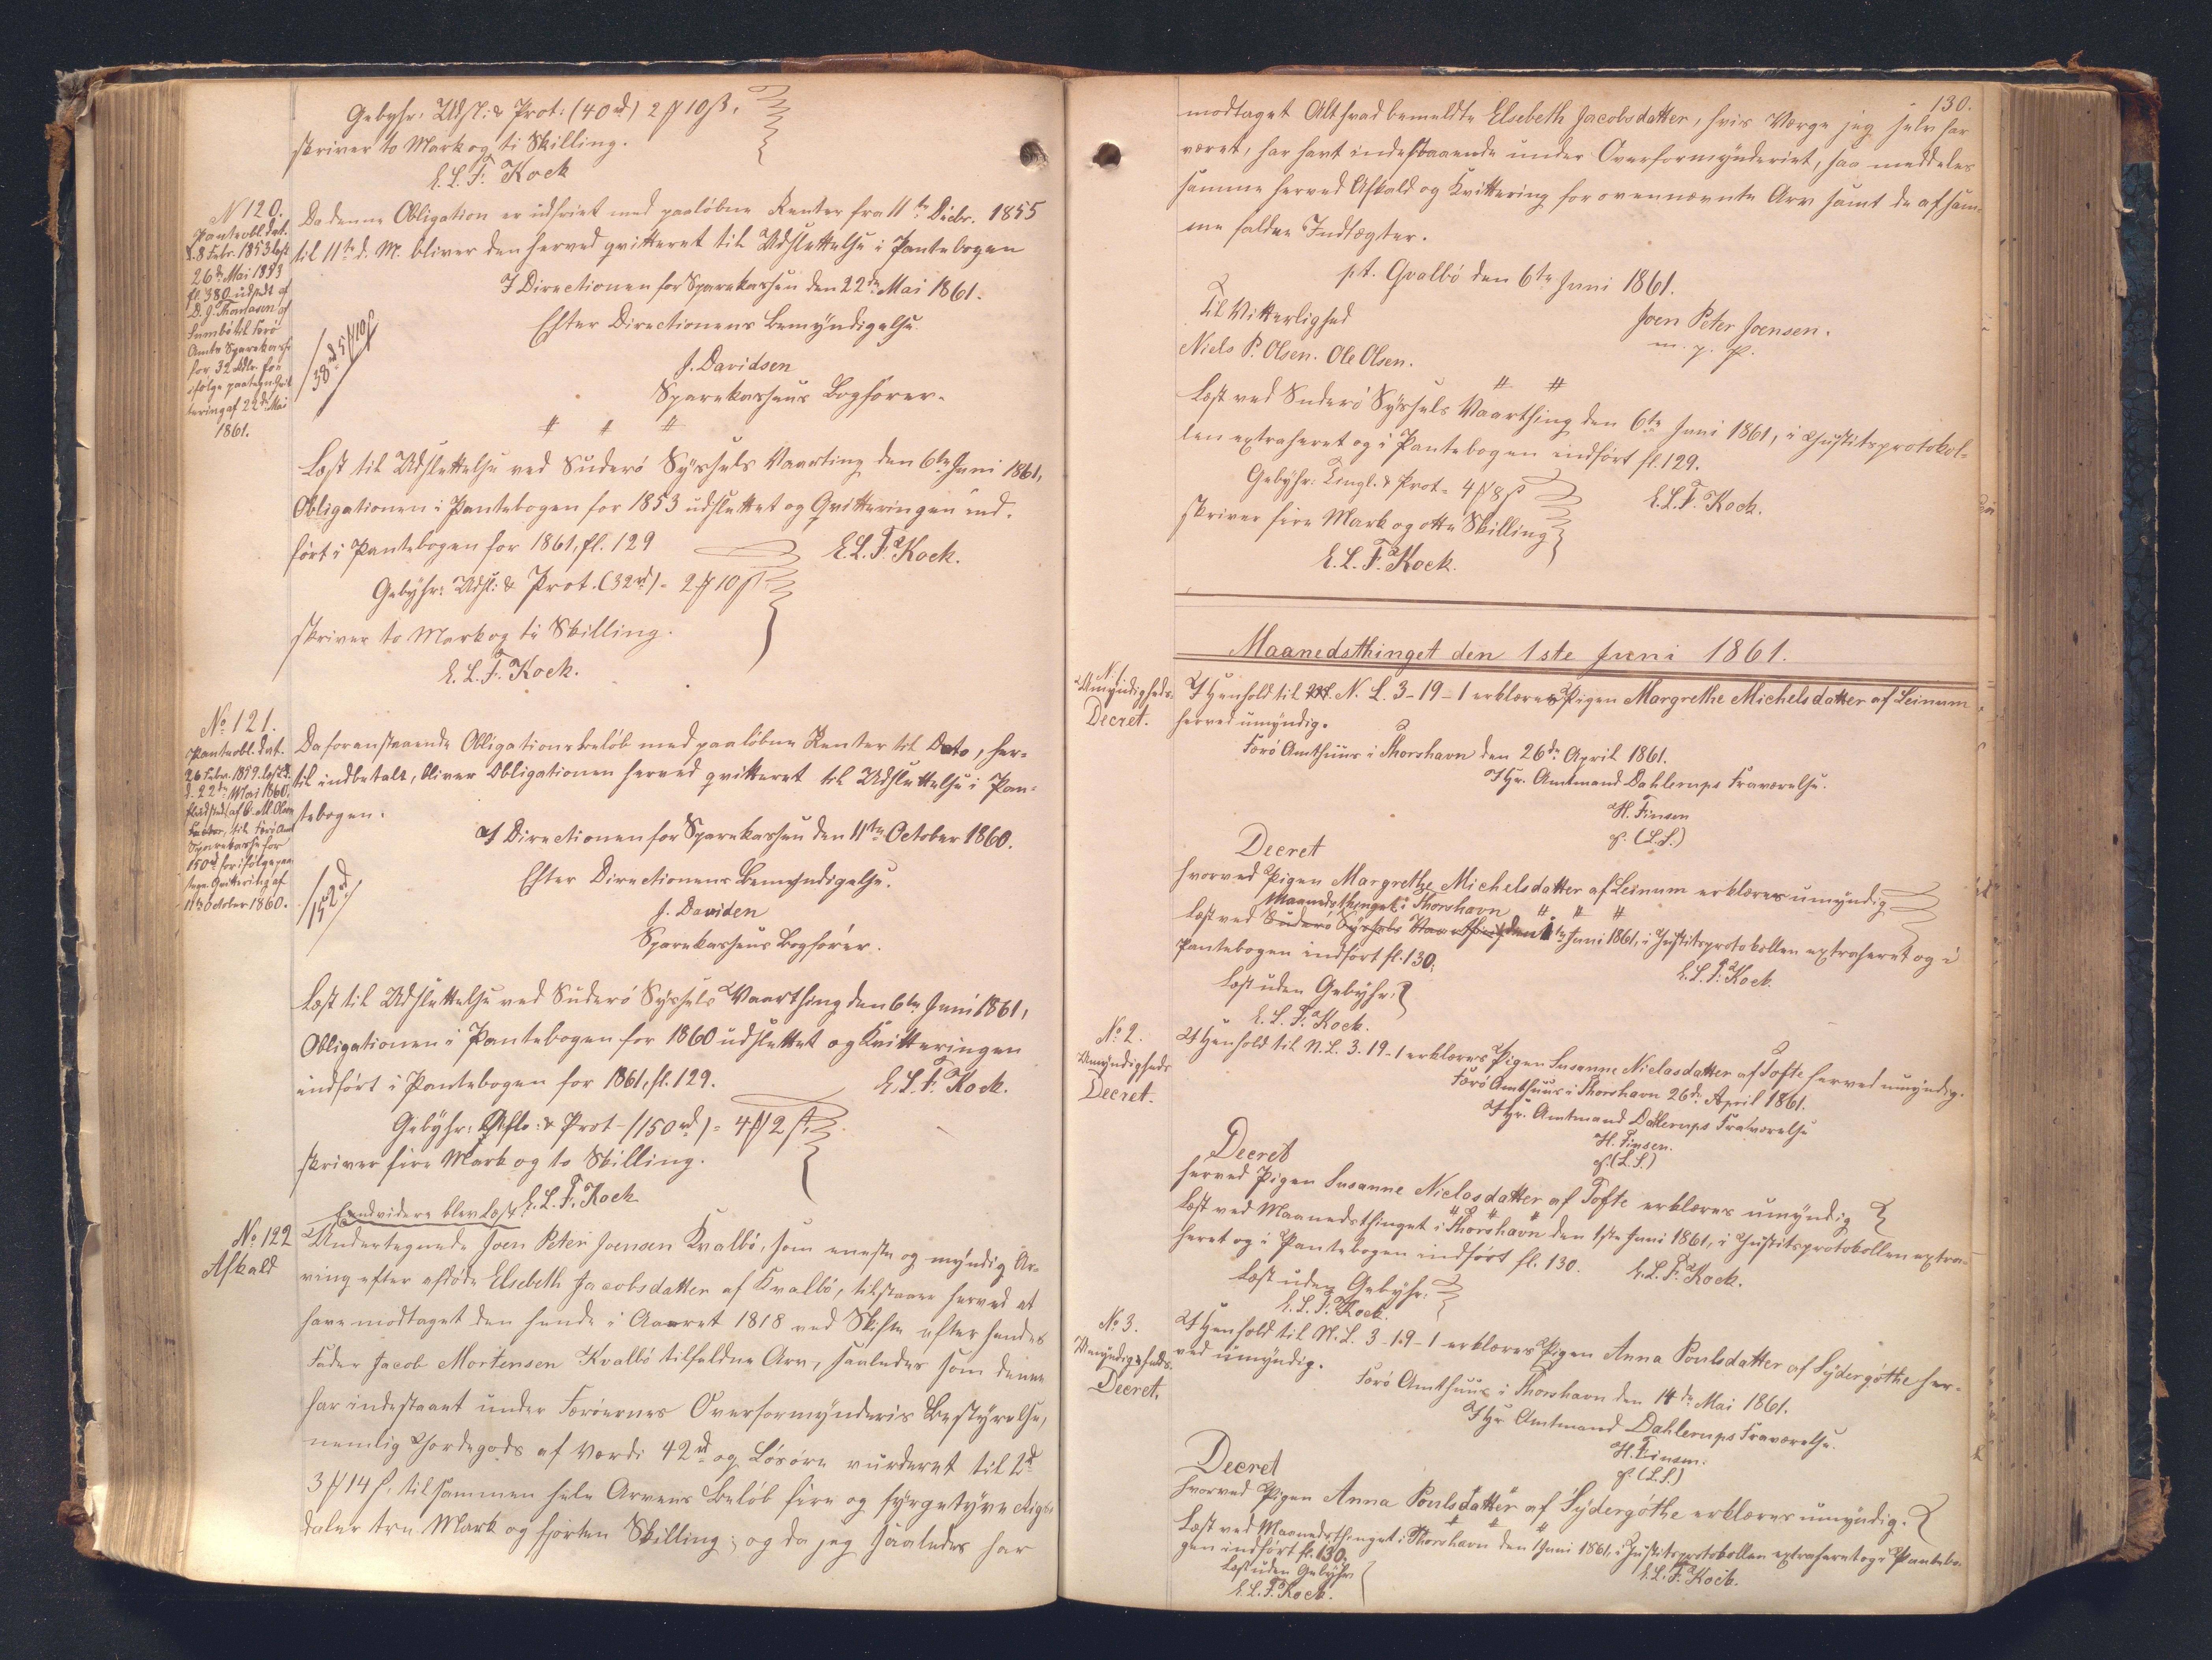 Gebyhr: Udsl: & Prot: (40 rd) 2 # 10 ß.
skriver to Mark og ti Skilling.
E. L. F. Kock
N 120.
Panteobl. dat.
d. 8 Febr. 1853 læst
26de Mai 1853
fl. 380 udstdt af
D. J. Thomasen af
Sumbö til Færö
Amts Sparekasse
for 32 Rdlr. för
ifölge paategn. Qvit
tering af 22de Mai
1861.
Da denne Obligation er indfriet med paalöbne Renter fra 11te Decbr. 1855
til 11te d. M. bliver den herved qvitteret til Udslettelse i Pantebogen
I Directionen for Sparekassen den 22de Mai 1861.
Efter Directionens Bemyndigelse.
J. Davidsen
Sparekassens Bogförer.
/38 rd 5 # 10 ß/
# # #
Læst til Udslettelse ved Suderö Syssels Vaarting den 6te Juni 1861,
Obligationen i Pantebogen for 1853 udslettet og Qvitteringen ind-
fört i Pantebogen for 1861, fl. 129
E. L. F. Kock.
Gebyhr: Udsl: & Prot. (32 rd) = 2 # 10 ß
skriver to Mark og ti Skilling.
E. L. F. Kock.
No 121.
Panteobl. dat.
26 Febr. 1859. læst
d. 22de Mai 1860.
til Færö Amts
Sparekasse for
150 rd för ifölge paa
tegn. Qvittering af
11te October 1860.
Da foranstaaende Obligationsbelöb med paalöbne Renter til Dato, her-
til indbetalt, bliver Obligationen herved qvitteret til Udslettelse i Pan-
tebogen.
I Directionen for Sparekassen den 11te October 1860.
Efter Directionens Bemyndigelse.
J. Daviden
Sparekassens Bogförer.
/152 rd/
Læst til Udslettelse ved Suderö Syssels Vaarthing den 6te Juni 1861,
Obligationen i Pantebogen for 1860 udslettet og Kvitteringen
indfört i Pantebogen for 1861, fl. 129.
E. L. F. Kock.
Gebyhr: Afl: & Prot - (150 rd) = 4 # 2 ß
skriver fire Mark og to Skilling.
E. L. F. Kock
Endvidere blev læst.
No 122
Afkald
Undertegnede Joen Peter Joensen Kvalbö, som eneste og myndig Ar-
ving efter afdöde Elsebeth Jacobsdatter af Kvalbö, tilstaaer herved at
have modtaget den hende i Aaret 1818 ved Skifte efter hendes
Fader Jacob Mortensen Kvalbö tilfaldne Arv, saaledes som denne
har indestaaet under Færöernes Overformynderis Bestyrelse,
nemlig Jordegods af Værdi 42 rd og Lösöre vurderet til 2 rd
3 # 14 ß, tilsammen hele Arvens Belöb fire og fyrgetyve Rigs
daler tre Mark og fjorten Skilling; og da jeg saaledes har
130.
modtaget Alt hvad bemeldte Elsebeth Jacobsdatter, hvis Værge jeg selv har
været, har havt indestaaende under Overformynderiet, saa meddeles
samme herved Afkald og Kvittering for ovennævnte Arv samt de af sam-
me faldne Indtægter.
pt. Qvalbö den 6te Juni 1861.
Til Vitterlighed
Joen Peter Joensen.
Niels P. Olsen. Ole Olsen.
m. p. P.
# #
Læst ved Suderö Syssels Vaarthing den 6te Juni 1861, i Justitsprotokol-
len extraheret og i Pantebogen indfört fl. 129.
Gebyhr: Tingl. & Prot = 4 # 8 ß
skriver fire Mark og otte Skilling
E. L. F. Kock.
E. L. F. Kock.
Maanedsthinget den 1ste Juni 1861.
N. 1.
Umyndigheds-
Decret.
I Henhold til N. L. 3-19-1 erklæres Pigen Margrethe Michelsdatter af Leinum
herved umyndig.
Færö Amthuus i Thorshavn den 26de April 1861.
I Hr. Amtmand Dahlerups Fraværelse.
H. Finsen
(L. S.)
Decret
hvorved Pigen Margrethe Michelsdatter af Leinum erklæres umyndig
Maanedsthinget i Thorshavn # # #
Læst ved Suderö Syssels Vaarthing den 1te Juni 1861, i Justitsprotokollen extraheret og i
Pantebogen indfört fl. 130.
E. L. F. Kock.
Læst uden Gebyhr.
E. L. F. Kock.
No 2.
Umyndigheds
Decret.
I Henhold til N. L. 3. 19-1 erklæres Pigen Susanne Niclasdatter af Tofte herved umyndig.
Færö Amthuus i Thorshavn 26de April 1861.
I Hr. Amtmand Dahlerups Fraværelse
H. Finsen.
(L. S.)
Decret
herved Pigen Susanne Niclasdatter af Tofte erklæres umyndig
Læst ved Maanedsthinget i Thorshavn den 1ste Juni 1861, i Justitsprotokollen extra-
heret og i Pantebogen indfört fl. 130.
E. L. F. Kock.
Læst uden Gebyhr.
E. L. F. Kock.
No 3.
Umyndigheds-
Decret.
I Henhold til N. L. 3-19-1 erklæres Pigen Anna Poulsdatter af Sydergöthe her-
ved umyndig.
Færö Amthuus i Thorshavn den 14de Mai 1861.
I Hr. Amtmand Dahlerups Fraværelse.
H. Finsen.
(L. S.)
Decret
hvorved Pigen Anna Poulsdatter af Sydergöthe erklæres umyndig.
Læst ved Maanedsthinget i Thorshavn den 1 Juni 1861, i Justitsprotokollen extraheret og i Pantebo-
gen indfört fl. 130.
E. L. F. Kock.
Læst uden Gebyhr
E. L. F. Kock.